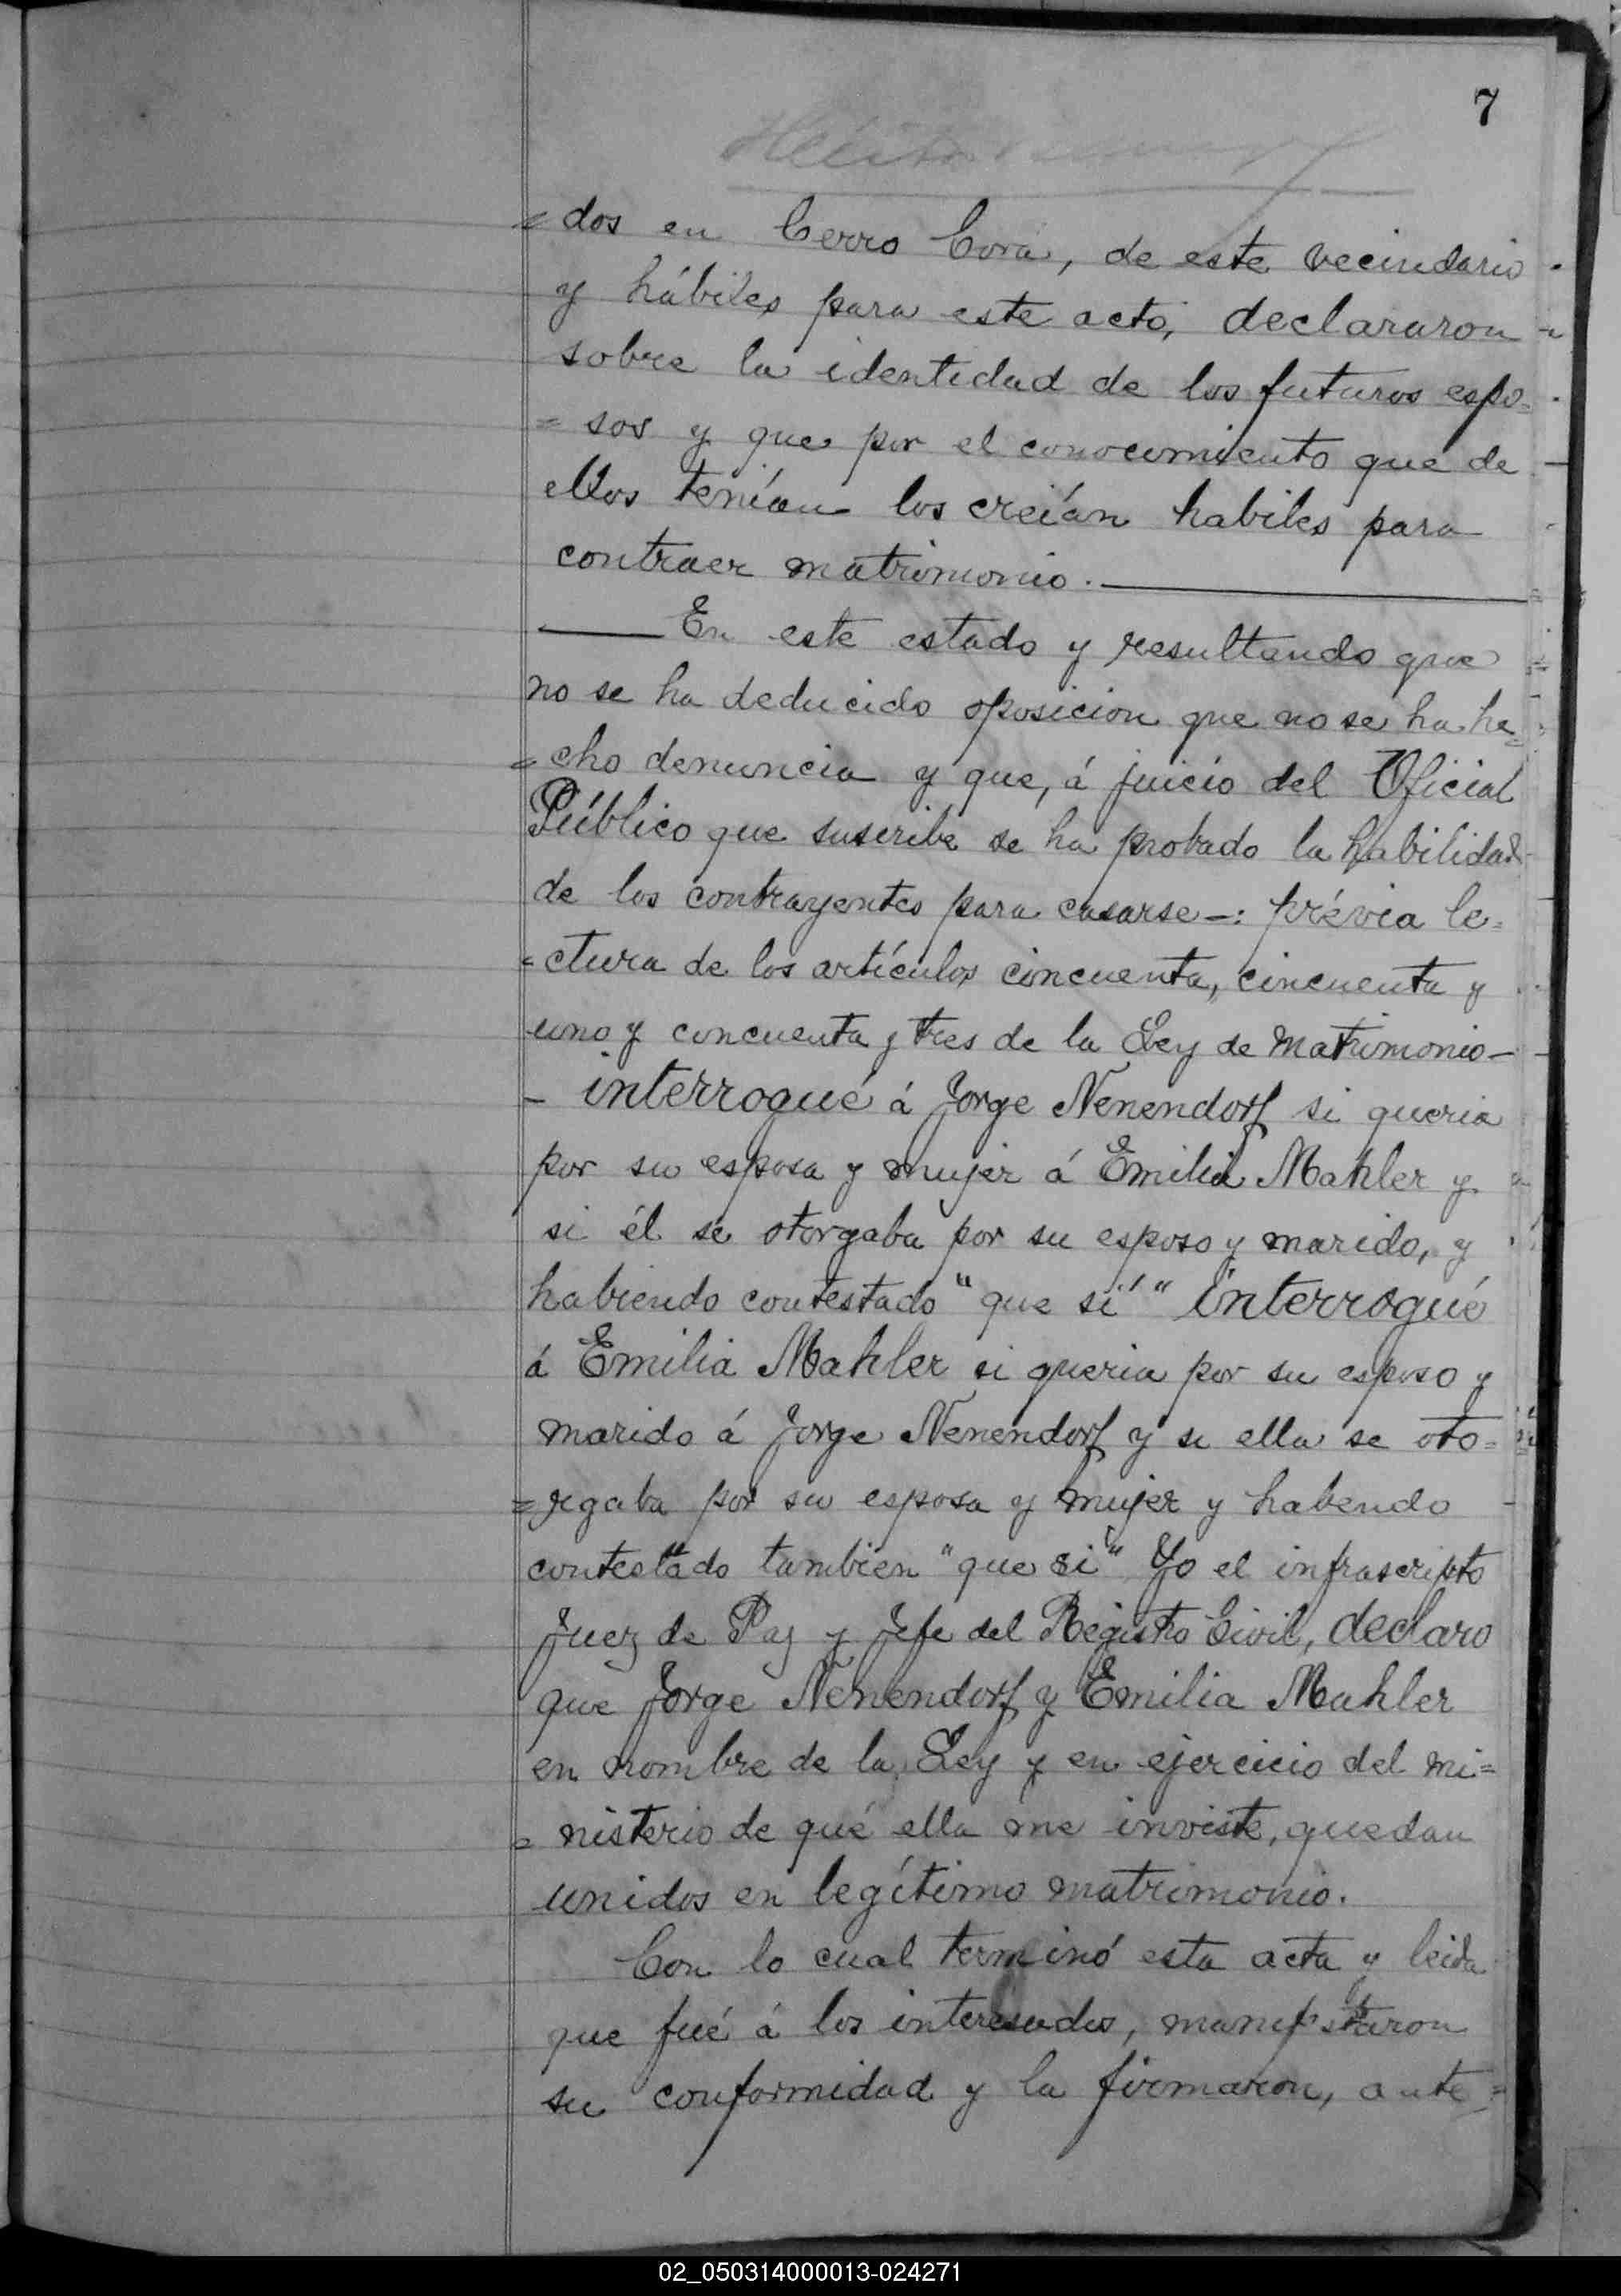 7
=dos en Cerro Corá, de este vecindario
y hábiles para este acto, declararon
sobre la identidad de los futuros espo=
=sos y que por el conocimiento que de
ellos tenían los creían habiles para
contraer matrimonio.
En este estado y resultando que
no se ha deducido oposicion que no se ha he=
=cho denuncia y que, á juicio del Oficial
Público que suscribe se ha probado la habilidad
de los contrayentes para casarse—: prévia le=
=ctura de los artículos cincuenta, cincuenta y
uno y cincuenta y tres de la Ley de Matrimonio—
- interrogué á Jorge Nenendorf si queria
por su esposa y mujer á Emilia Mahler y
si él se otorgaba por su esposo y marido, y
habiendo contestado "que sí" interrogué
á Emilia Mahler si queria por su esposo y
marido á Jorge Nenendorf y si ella se oto=
=rgaba por su esposa y mujer y habendo
contestado tambien "que si" Yo el infrascripto
Juez de Paz y Jefe del Registro Civil, declaro
que Jorge Nenendorf y Emilia Mahler
en nombre de la Ley y en ejercicio del mi=
=nisterio de qué ella me inviste, quedan
unidos en legítimo matrimonio.
Con lo cual terminó esta acta y leida
que fué á los interesados, manifestaron
su conformidad y la firmaron, ante=
02_050314000013-024271